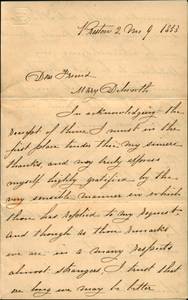 Preston 2 mo 9 1853
Dear Friend
Mary Dilworth
In acknowledging the
receipt of thine I must in the
first place tender thee my sincere
thanks and may truly express
myself highly gratified by the
very sensible manner in which
thou has replied to my request
And though as thou remarks
we are in a many respects
almost strangers I trust that
we long we may be better